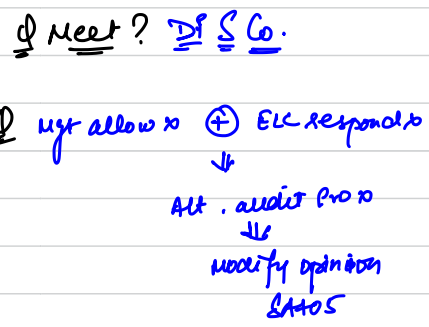 I Meet? DP S Co.
Mgt allow x ⊕ ELC respond x
⇓
Alt. audit Pro x
⇓
Modify opinion
SA705